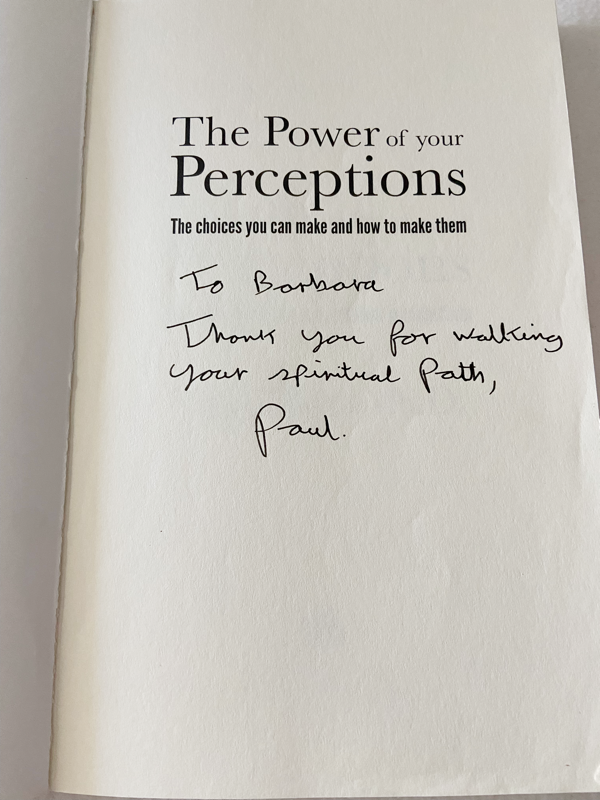 The Power of your
Perceptions
The choices you can make and how to make them
To Barbara
Thank you for walking
your spiritual Path,
Paul.